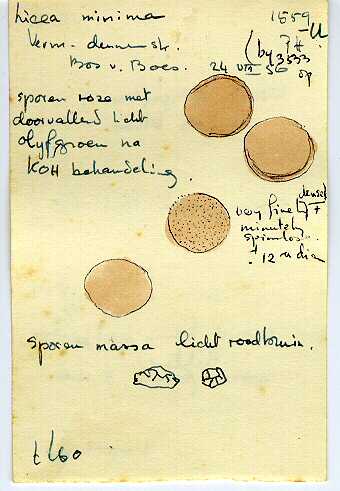 Licea minima 1559
Verm. dennestr. (by 3533
Bos v. Boes. 24 VIII 56 op
sporen roze met
doorvallend licht
olyfgroen na
KOH behandeling.
very finely + densely
minutely
spinulose
± 12 u dia
sporen massa licht roodbruin.
t 160